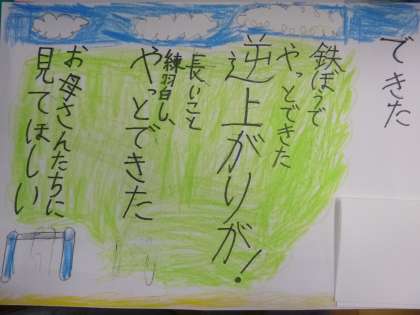 できた
鉄ぼうで
やっとできた
逆上がりが!
長いこと
練習し、
やっとできた
お母さんたちに
見てほしい